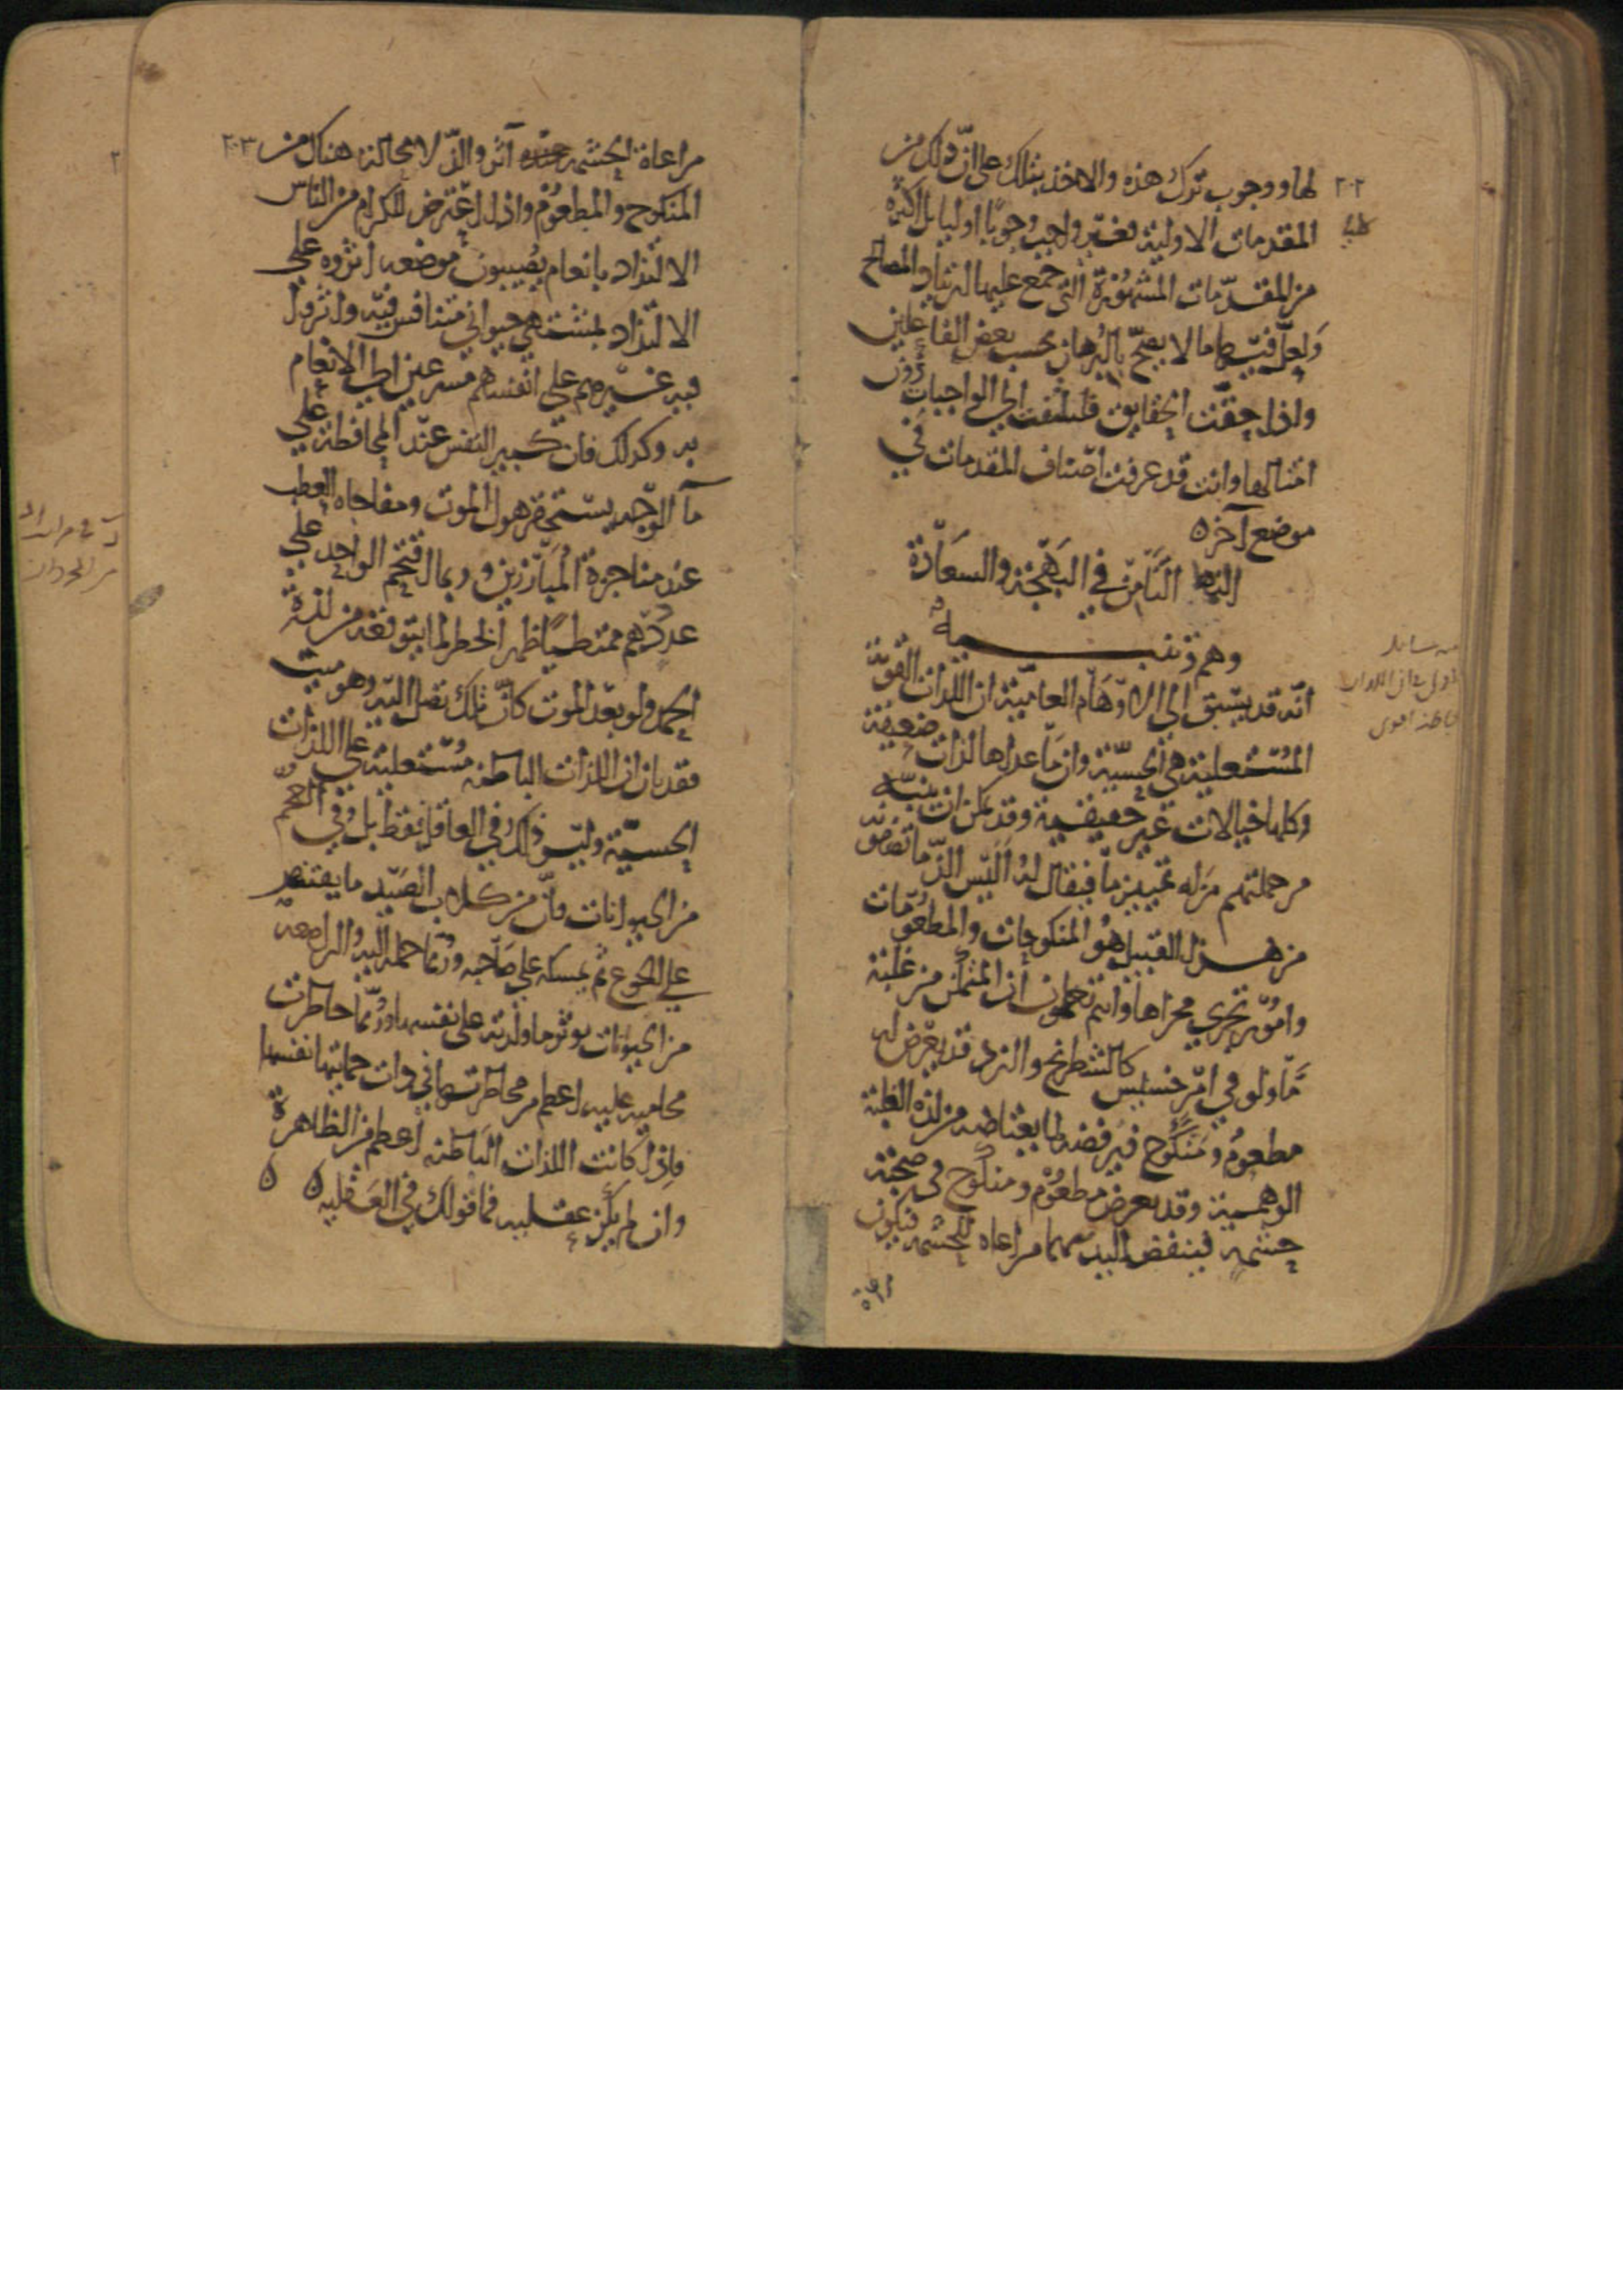 ٢٠٢
لها ووجوب ترك هذه والاخذ بتلك على ان ذلك من
المقدمات الاولية فغير واجب وجوبا اوليا بل اكثره
من المقدمات المشهورة التي جمع عليها ارتياد المصالح
ولعل فيها ما لا يصح بالبرهان بحسب بعض الفاعلين
واذا حققت الحقايق فليلتفت الى الواجبات دون
امثالها وانت قد عرفت اصناف المقدمات في
موضع آخر ه
النمط الثامن في البهجة والسعادة
وهم وتنبيه
انه قد يسبق الى الاوهام العامية ان اللذات القوية
المستعلية هي الحسية وان ما عداها لذات ضعيفة
وكلها خيالات غير حقيقية وقد يمكن ان ينبه
من جملتهم من له تمييز ما فيقال له اليس الذ ما تصفونه
من هذا القبيل هو المنكوحات والمطعومات
وامور تجري مجراها وانتم تعلمون ان المتمكن من غلبة
ما ولو في امر خسيس كالشطرنج والنرد قد يعرض له
مطعوم ومنكوح فيرفضه لما يعتاضه من لذة الغلبة
الوهمية وقد يعرض مطعوم ومنكوح في صحبة
حشمه فينفض اليد عنهما مراعاة للحشمه فيكون
مراعاة
٢٠٣
مراعاة الحشمه آثر والذ لا محالة هناك من
المنكوح والمطعوم واذا اعترض للكرام من الناس
الالتذاذ بانعام يصيبون موضعه آثروه على
الالتذاذ بمشتهى حيواني متنافس فيه واثروا
فيه غيرهم على انفسهم مسرعين الى الانعام
به وكذلك فان كبير النفس عند المحافظة على
ماء الوجه يستحقر هول الموت ومفاجاة العطب
عند مناجزة المبارزين وربما اقتحم الواحد على
عدد دهم ممتطيا ظهر الخطر لما يتوقعه من لذة
الحمد ولو بعد الموت كان تلك تصل اليه وهو ميت
فقد بان ان اللذات الباطنه مستعلية على اللذات
الحسية وليس ذلك في العاقل فقط بل وفي العجم
من الحيوانات فان من كلاب الصيد ما يقتنص
على الجوع ثم يمسكه على صاحبه وربما حمله اليه والراضعه
من الحيوانات توثر ما ولدته على نفسها وربما خاطرت
محاميه عليه اعظم من مخاطرتها في ذات حمايتها نفسها
فاذا كانت اللذات الباطنه اعظم من الظاهرة
وان لم يكن عقليه فما قولك في العقليه ه ه